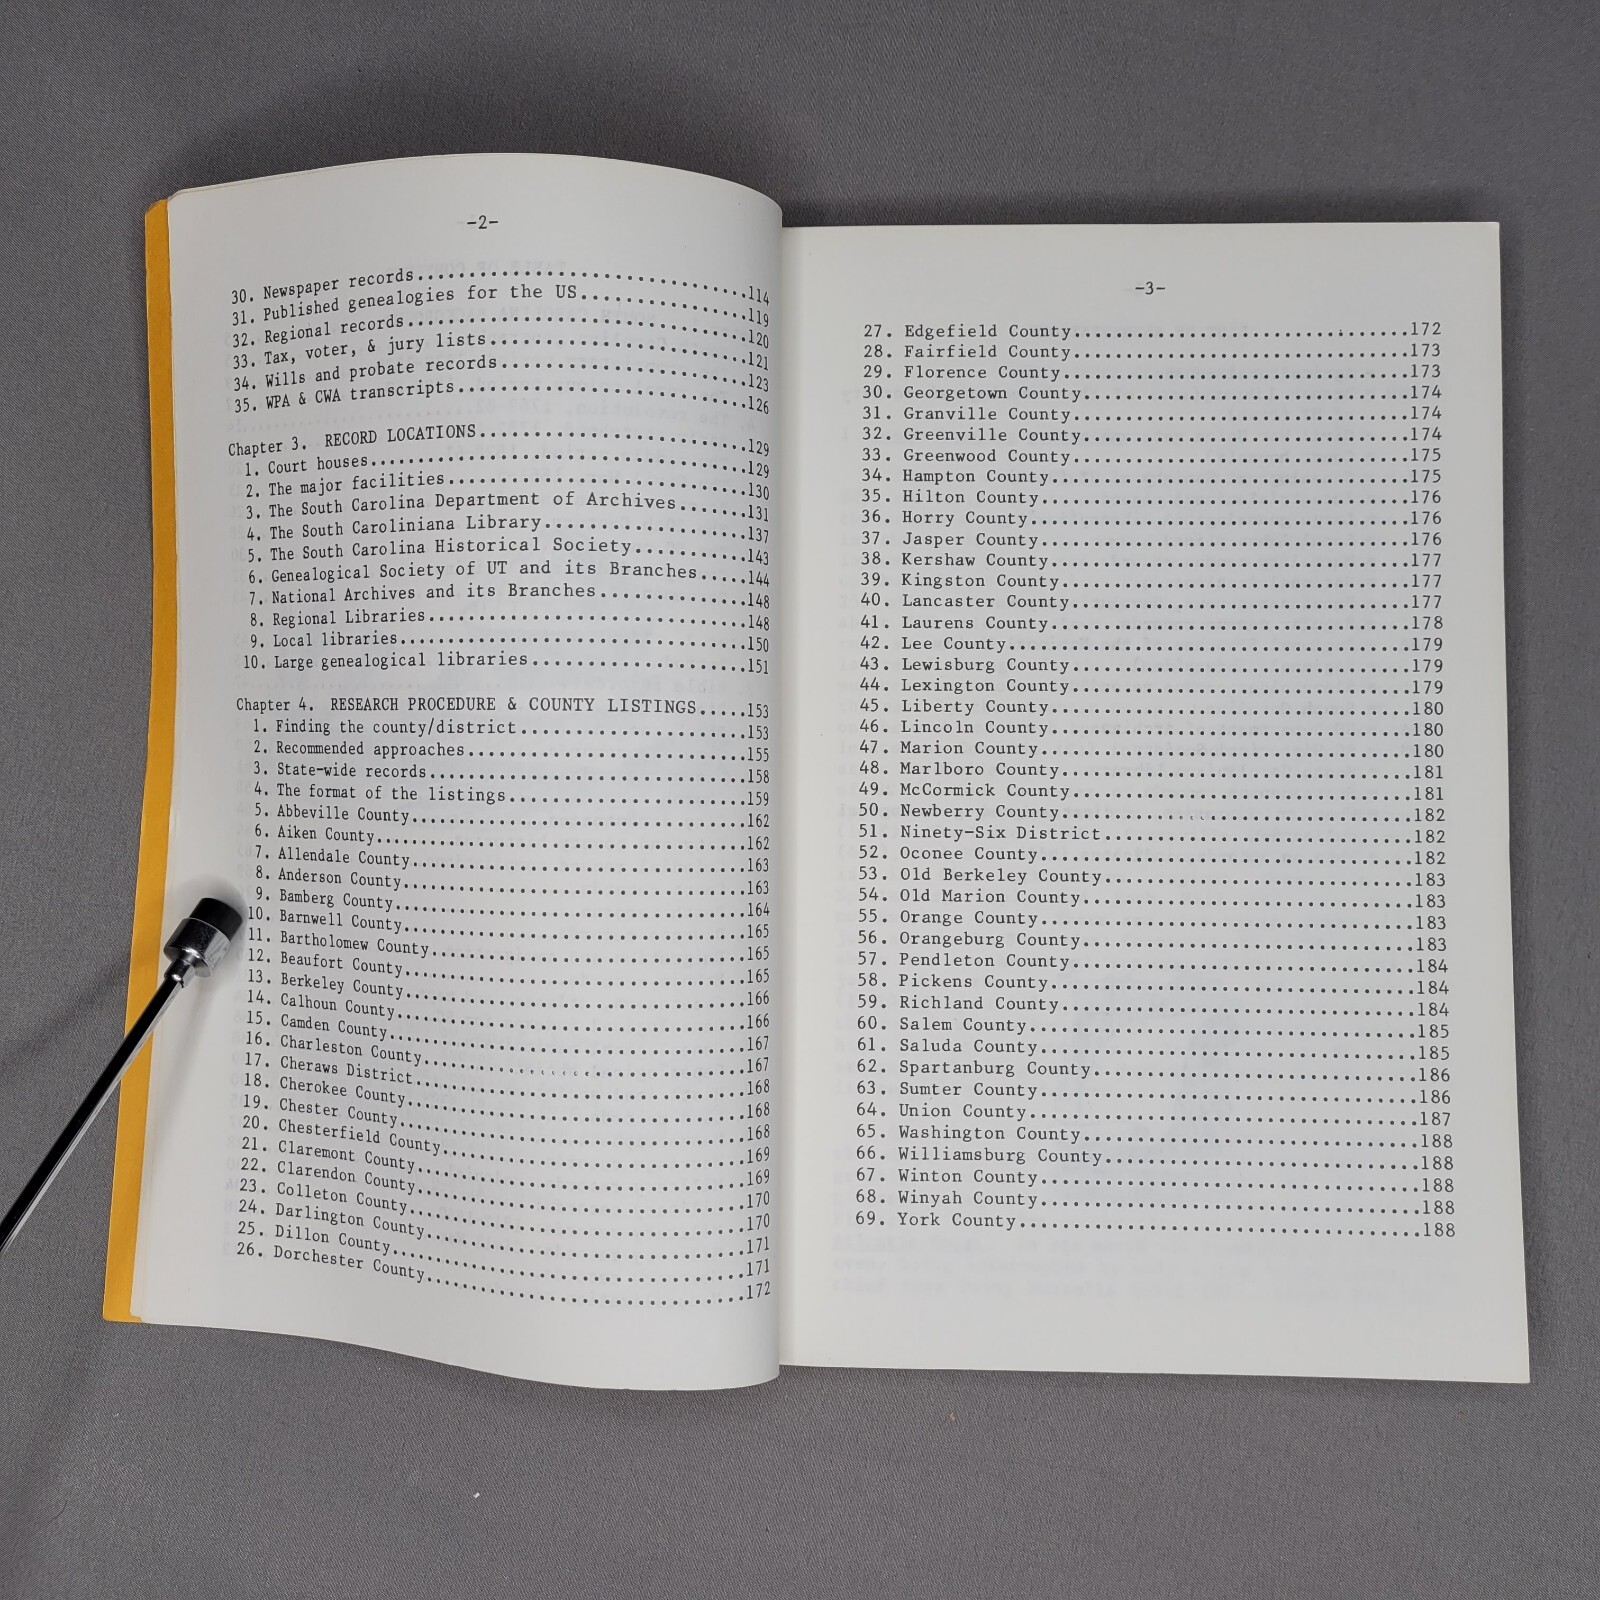 -2-
30. Newspaper records..............................114
31. Published genealogies for the US................119
32. Regional records................................120
33. Tax, voter, & jury lists........................121
34. Wills and probate records.......................123
35. WPA & CWA transcripts...........................126
Chapter 3. RECORD LOCATIONS.........................129
1. Court houses.....................................129
2. The major facilities.............................130
3. The South Carolina Department of Archives.......131
4. The South Caroliniana Library....................137
5. The South Carolina Historical Society...........143
6. Genealogical Society of UT and its Branches.....144
7. National Archives and its Branches..............148
8. Regional Libraries...............................148
9. Local libraries..................................150
10. Large genealogical libraries....................151
Chapter 4. RESEARCH PROCEDURE & COUNTY LISTINGS.....153
1. Finding the county/district......................153
2. Recommended approaches...........................155
3. State-wide records...............................158
4. The format of the listings.......................159
5. Abbeville County.................................162
6. Aiken County.....................................162
7. Allendale County.................................163
8. Anderson County..................................163
9. Bamberg County...................................164
10. Barnwell County.................................165
11. Bartholomew County..............................165
12. Beaufort County.................................165
13. Berkeley County.................................166
14. Calhoun County..................................166
15. Camden County...................................167
16. Charleston County...............................167
17. Cheraws District................................168
18. Cherokee County.................................168
19. Chester County..................................168
20. Chesterfield County.............................169
21. Claremont County................................169
22. Clarendon County................................170
23. Colleton County.................................170
24. Darlington County...............................171
25. Dillon County...................................171
26. Dorchester County...............................172
-3-
27. Edgefield County................................172
28. Fairfield County................................173
29. Florence County.................................173
30. Georgetown County...............................174
31. Granville County................................174
32. Greenville County...............................174
33. Greenwood County................................175
34. Hampton County..................................175
35. Hilton County...................................176
36. Horry County....................................176
37. Jasper County...................................176
38. Kershaw County..................................177
39. Kingston County.................................177
40. Lancaster County................................177
41. Laurens County..................................178
42. Lee County......................................179
43. Lewisburg County................................179
44. Lexington County................................179
45. Liberty County..................................180
46. Lincoln County..................................180
47. Marion County...................................180
48. Marlboro County.................................181
49. McCormick County................................181
50. Newberry County.................................182
51. Ninety-Six District.............................182
52. Oconee County...................................182
53. Old Berkeley County.............................183
54. Old Marion County...............................183
55. Orange County...................................183
56. Orangeburg County...............................183
57. Pendleton County................................184
58. Pickens County..................................184
59. Richland County.................................184
60. Salem County....................................185
61. Saluda County...................................185
62. Spartanburg County..............................186
63. Sumter County...................................186
64. Union County....................................187
65. Washington County...............................188
66. Williamsburg County.............................188
67. Winton County...................................188
68. Winyah County...................................188
69. York County.....................................188